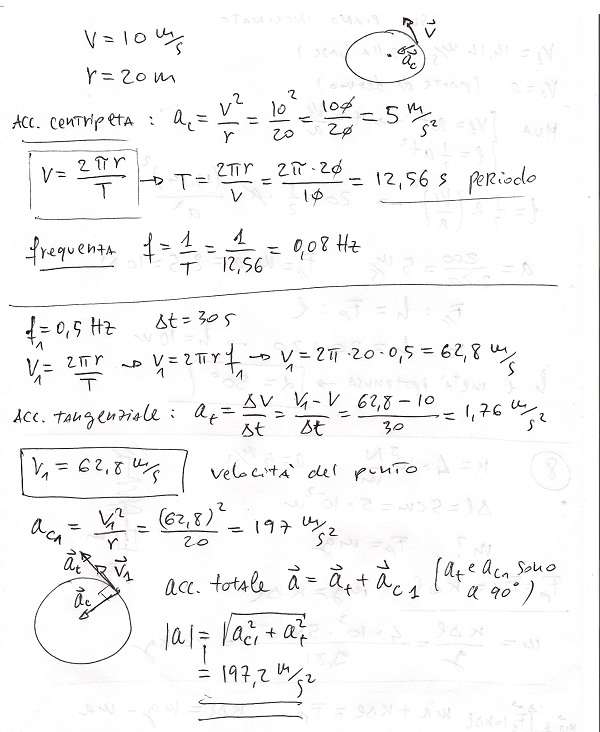 V = 10 m/s
r = 20 m
V
a_c
Acc. centripeta : a_c = V²/r = 10²/20 = 100/20 = 5 m/s²
V = 2πr/T → T = 2πr/V = 2π·20/10 = 12,56 s periodo
frequenza f = 1/T = 1/12,56 = 0,08 Hz
f₁ = 0,5 Hz Δt = 30 s
V₁ = 2πr/T → V₁ = 2πr f₁ → V₁ = 2π·20·0,5 = 62,8 m/s
Acc. tangenziale : a_t = ΔV/Δt = V₁-V/Δt = 62,8-10/30 = 1,76 m/s²
V₁ = 62,8 m/s velocità del punto
a_c1 = V₁²/r = (62,8)²/20 = 197 m/s²
a_t V₁
a_c
acc. totale a = a_t + a_c1 (a_t e a_c1 sono a 90°)
|a| = √a_c1² + a_t²
= 197,2 m/s²